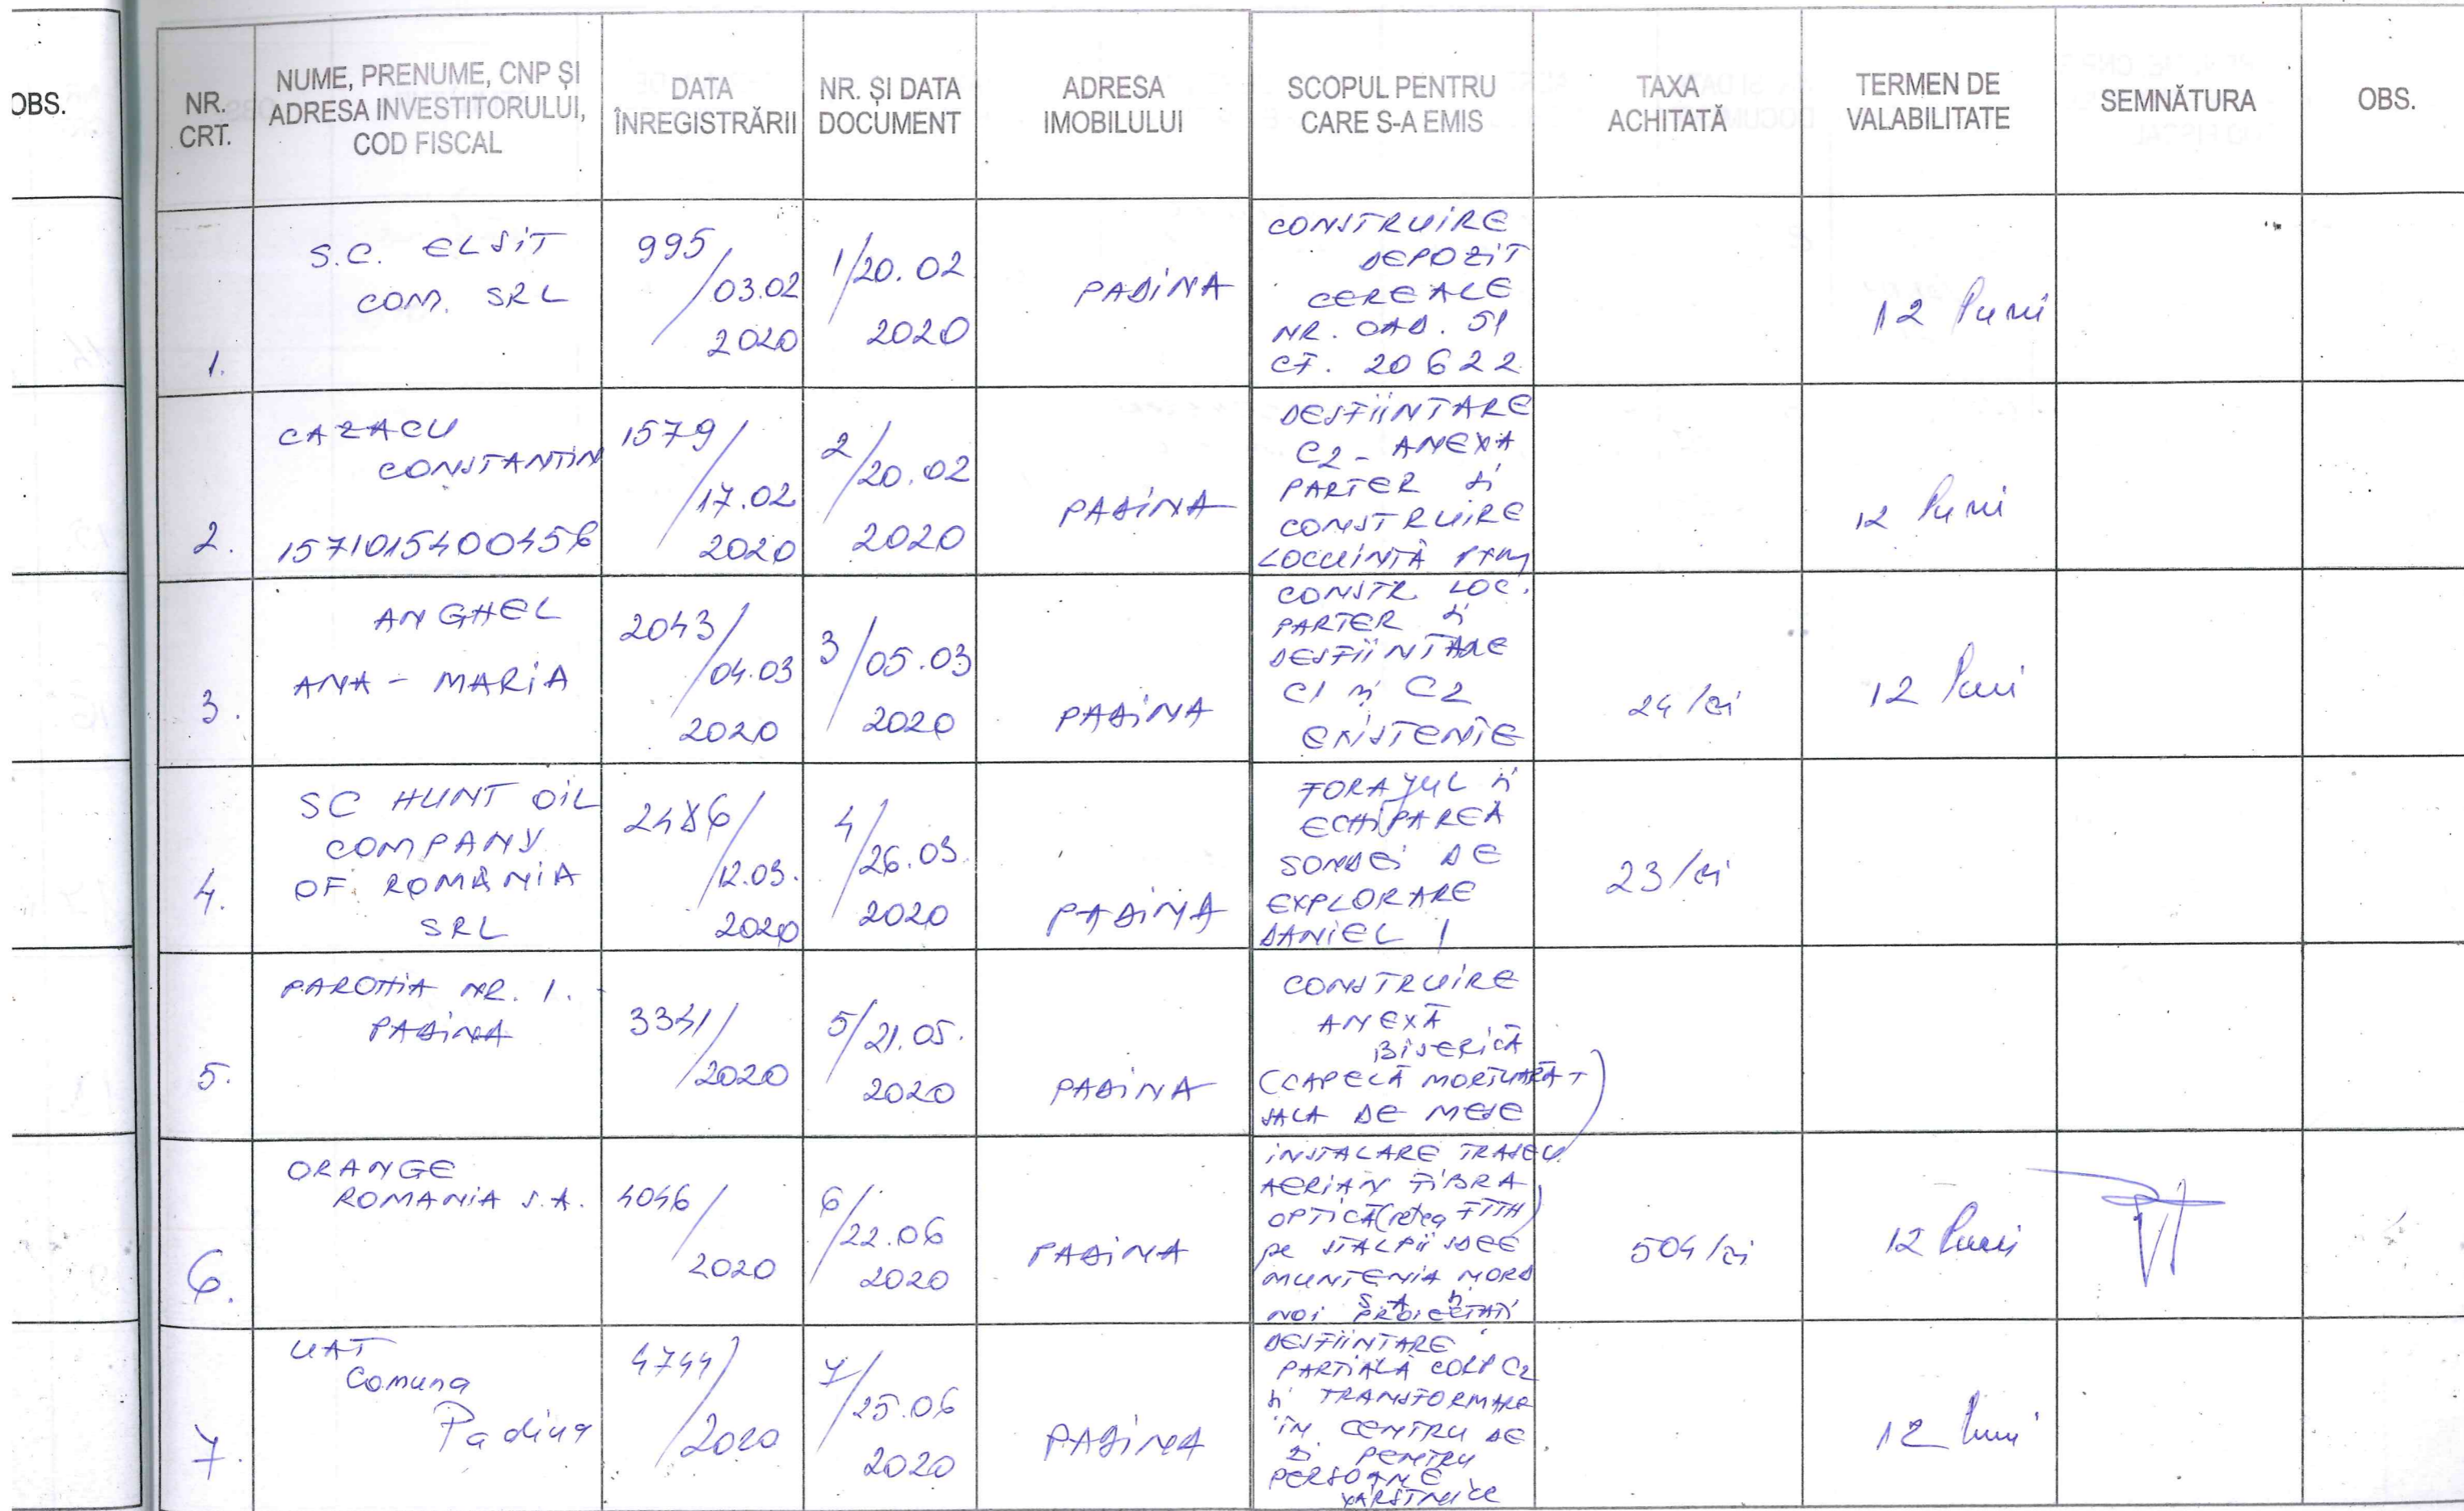 OBS.
NR. CRT.
NUME, PRENUME, CNP ȘI
ADRESA INVESTITORULUI,
COD FISCAL
DATA
ÎNREGISTRĂRII
NR. ȘI DATA
DOCUMENT
ADRESA
IMOBILULUI
SCOPUL PENTRU
CARE S-A EMIS
TAXA
ACHITATĂ
TERMEN DE
VALABILITATE
SEMNĂTURA
OBS.
1.
S.C. ELSIT
COM. SRL
995
/03.02
2020
1/20.02
2020
PADINA
CONSTRUIRE
DEPOZIT
CEREALE
NR. CAD. 51
CF. 20622
12 luni
2.
CAZACU
CONSTANTIN
1579/
17.02
2020
2/20.02
2020
PADINA
DESFIINTARE
C2 - ANEXA
PARTER și
CONSTRUIRE
LOCUINTĂ
12 luni
3.
ANGHEL
ANA - MARIA
2043/
04.03
2020
3/05.03
2020
PADINA
CONSTR. LOC.
PARTER și
DESFIINTARE
C1 și C2
EXISTENTE
24 lei
12 luni
4.
SC HUNT OIL
COMPANY
OF ROMÂNIA
SRL
2486/
12.03.
2020
4/26.03.
2020
PADINA
FORAJUL și
ECHIPAREA
SONDEI DE
EXPLORARE
DANIEL 1
23 lei
5.
PAROHIA NR. 1.
PADINA
3341/
2020
5/21.05.
2020
PADINA
CONSTRUIRE
ANEXĂ
BISERICĂ
(CAPELĂ MORTUARĂ +
SALA DE MESE)
6.
ORANGE
ROMANIA S.A.
4046/
2020
6/22.06
2020
PADINA
INSTALARE TRASEU
AERIAN FIBRA
OPTICĂ (retea FTTH)
pe STALPII SDEE
MUNTENIA NORD
S.A. și
NOI PROIECTATI
504 lei
12 luni
7.
UAT
Comuna
Padina
4744/
2020
7/25.06
2020
PADINA
DESFIINTARE
PARTIALĂ CORP C2
și TRANSFORMARE
ÎN CENTRU DE
ZI PENTRU
PERSOANE
VARSTNICE
12 luni